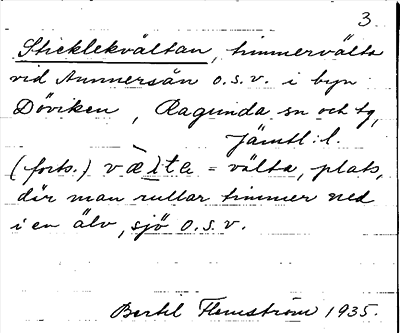 3.
Sticklekvältan, timmervälta
vid Ammersån o.s.v. i byn
Döviken, Ragunda sn och tg,
Jämtl:l.
(forts.) vӕ̀lta = välta, plats,
där man rullar timmer ned
i en älv, sjö o.s.v.
Bertil Flemström 1935.